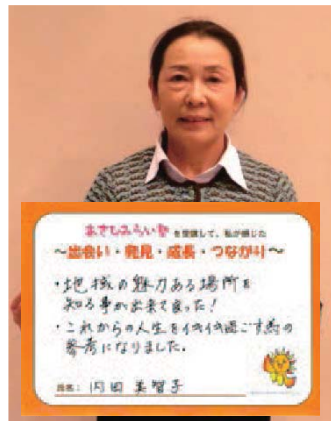 あさひみらい塾を受講して、私が感じた
～出会い・発見・成長・つながり～
・地域の魅力ある場所を
知る事が出来て良った！
・これからの人生をイキイキ過ごす為の
参考になりました。
氏名：内田 美智子